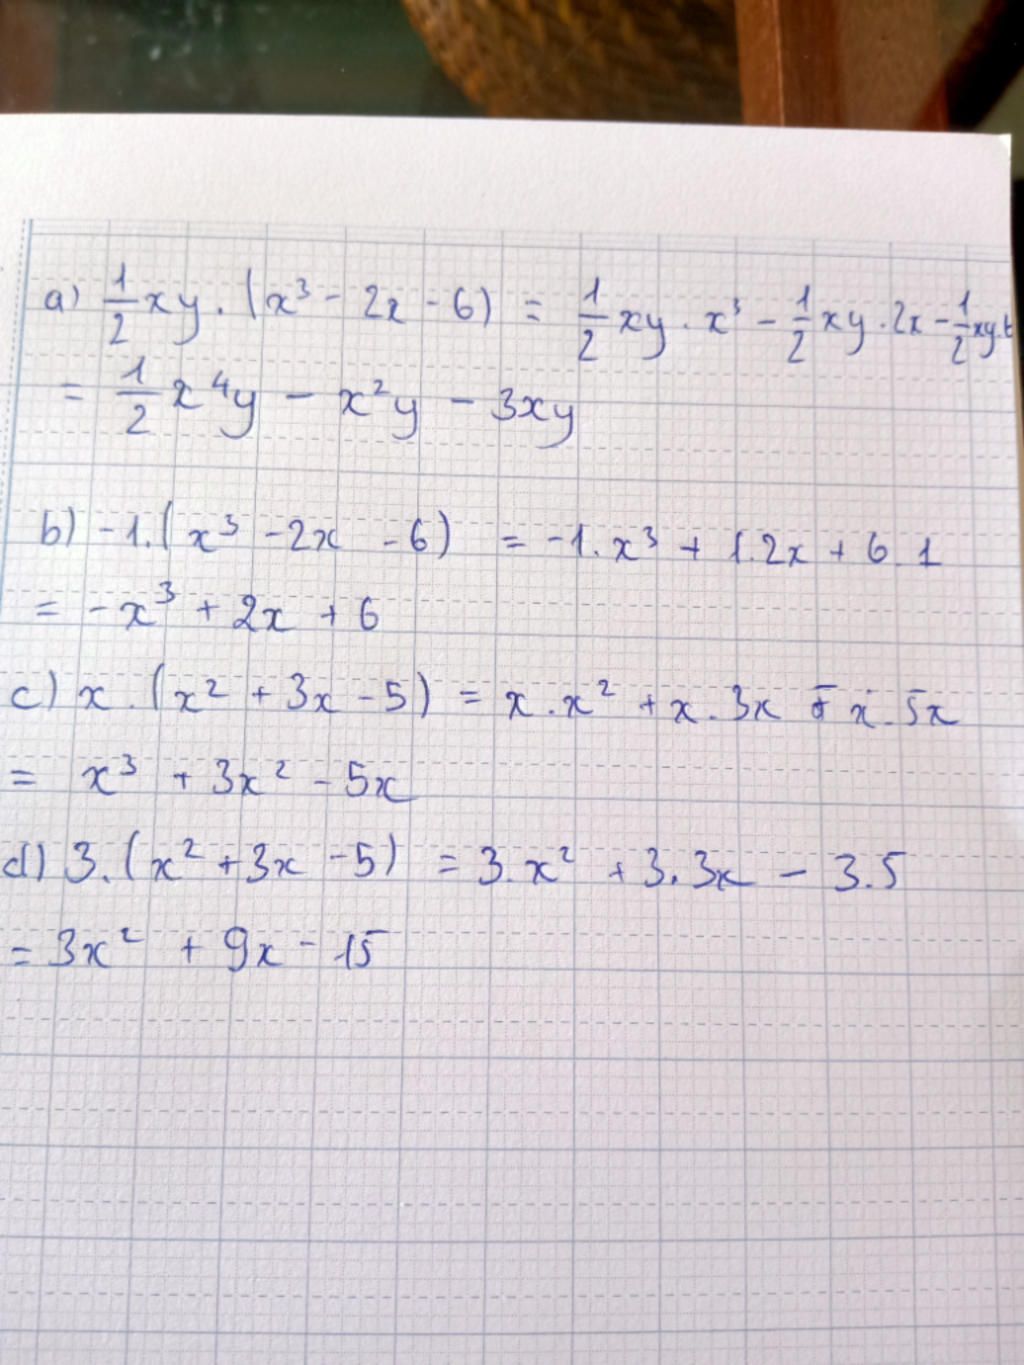 a) 1/2 xy . (x³ - 2x - 6) = 1/2 xy . x³ - 1/2 xy . 2x - 1/2 xy . 6
= 1/2 x⁴y - x²y - 3xy
b) -1.(x³ - 2x - 6) = -1.x³ + 1.2x + 6.1
= -x³ + 2x + 6
c) x . (x² + 3x - 5) = x . x² + x . 3x - x . 5x
= x³ + 3x² - 5x
d) 3.(x² + 3x - 5) = 3.x² + 3.3x - 3.5
= 3x² + 9x - 15